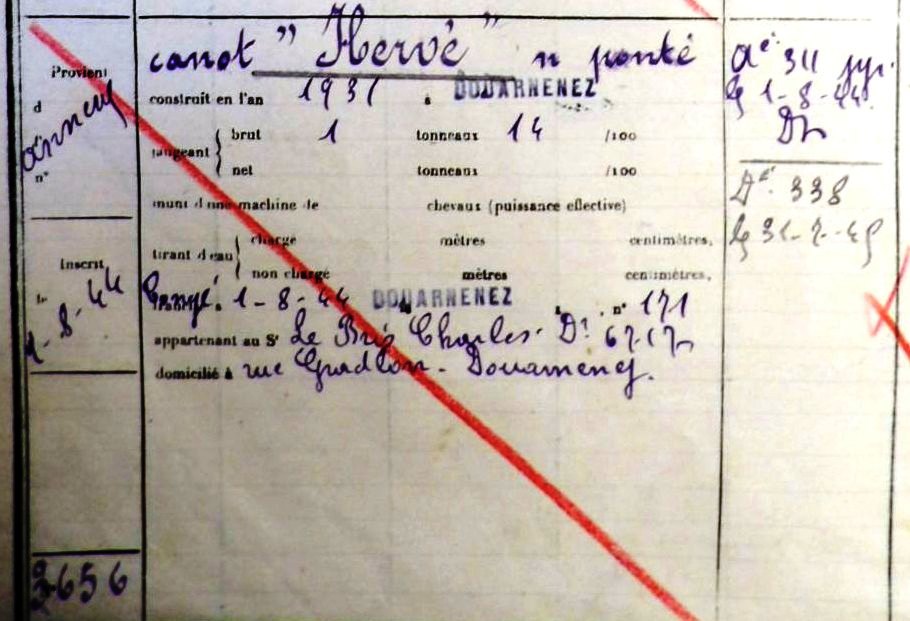 Provient
d
n°
Inscrit
le
1-8-44
2656
canot " Hervé " n ponté
construit en l'an 1931 à DOUARNENEZ
jaugeant
brut 1 tonneaux 14 /100
net tonneaux /100
muni d'une machine de chevaux (puissance effective)
tirant d'eau
chargé mètres centimètres,
non chargé mètres centimètres,
1-8-44 DOUARNENEZ n° 171
appartenant au Sr Le Bris Charles. Dz
domicilié à rue Gradlon. Douarnenez.
311
1-8-44
Dz
338